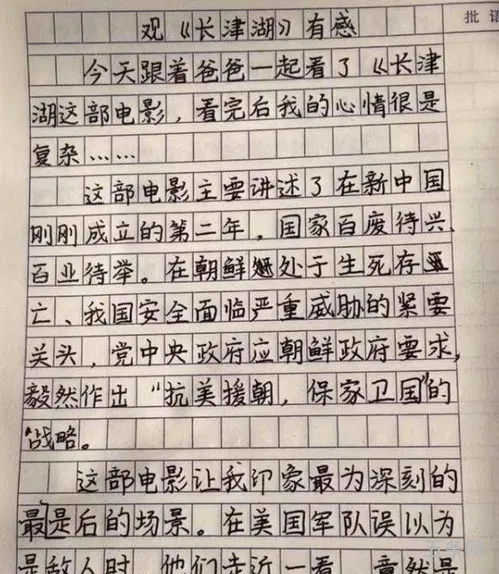 批语
观《长津湖》有感
今天跟着爸爸一起看了《长津
湖这部电影，看完后我的心情很是
复杂……
这部电影主要讲述了在新中国
刚刚成立的第二年，国家百废待兴、
百业待举。在朝鲜处于生死存
亡、我国安全面临严重威胁的紧要
关头，党中央政府应朝鲜政府要求，
毅然作出“抗美援朝，保家卫国”的
战略。
这部电影让我印象最为深刻的
最是后的场景。在美国军队误以为
是敌人时，他们走近一看，竟然是